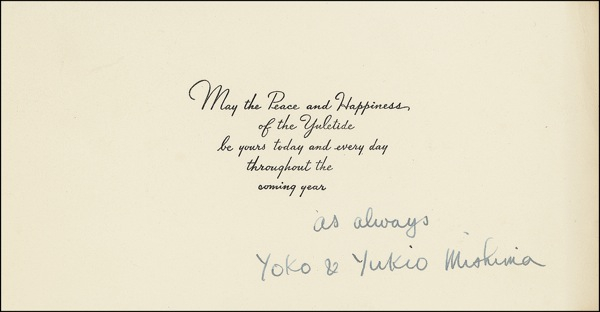 May the Peace and Happiness
of the Yuletide
be yours today and every day
throughout the
coming year
as always
Yoko & Yukio Mishima